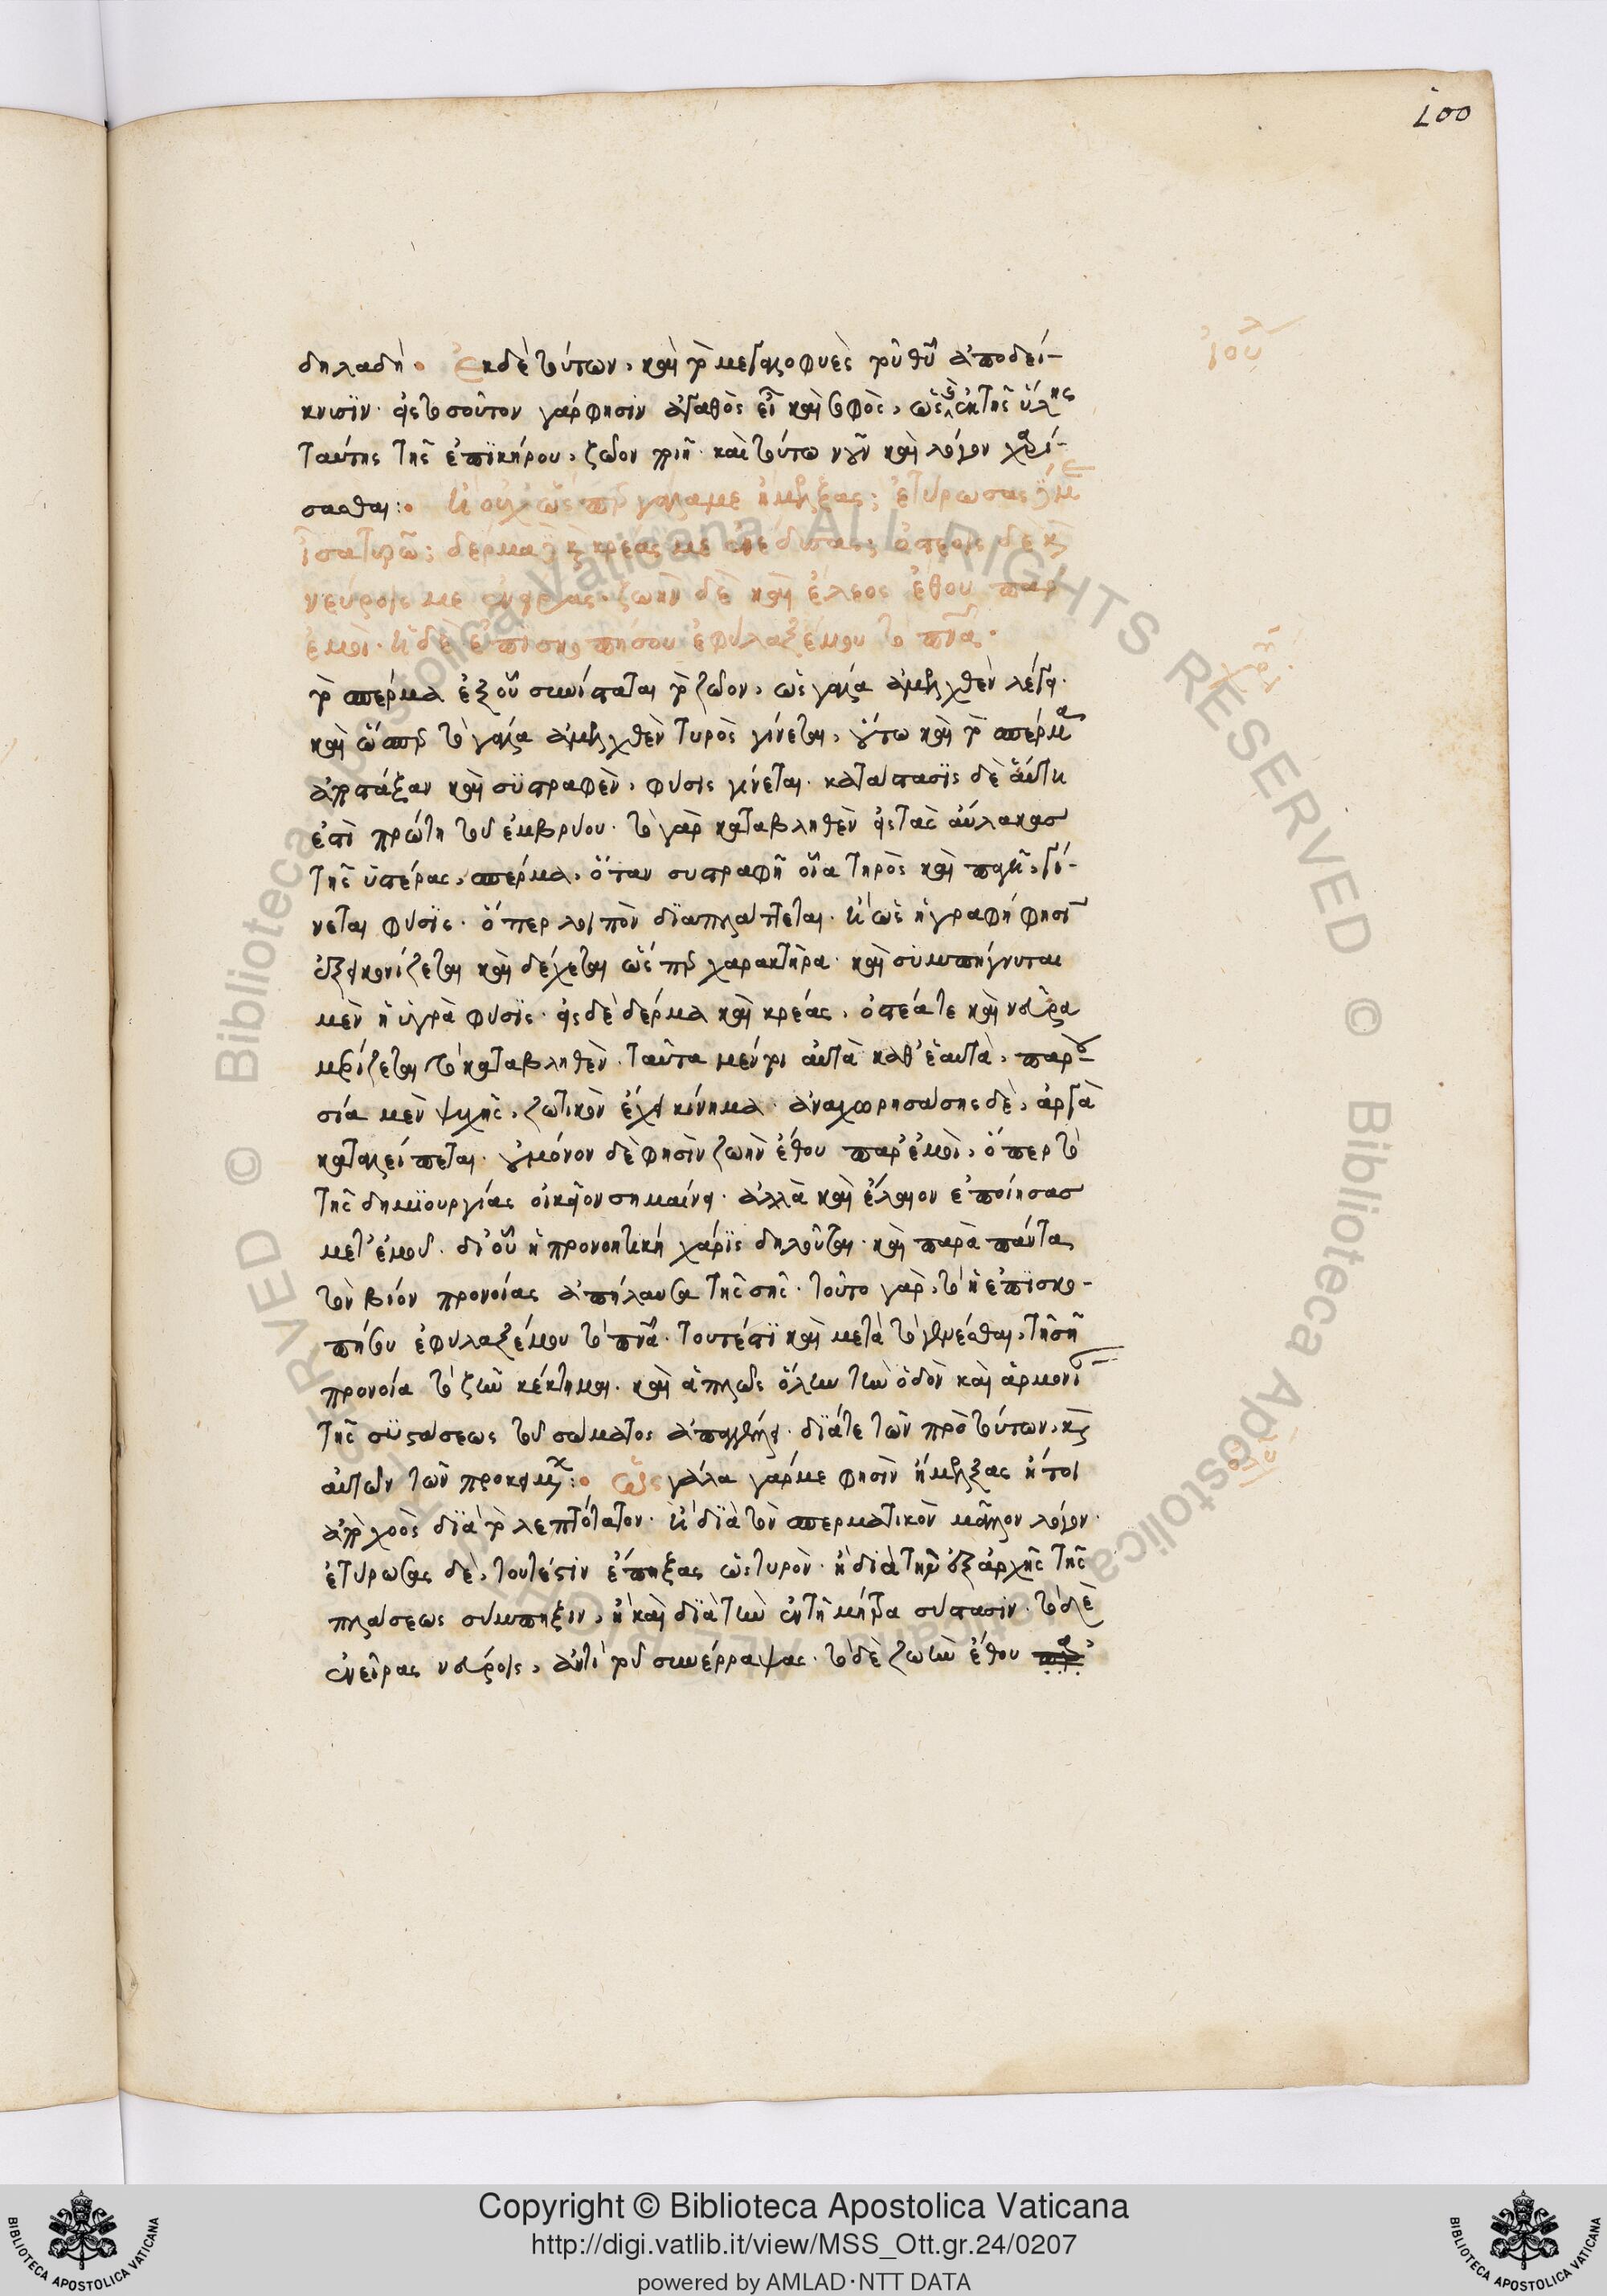 100
δηλαδή· Ἐκ δὲ τούτων, καὶ τὸ μεγαλοφυὲς τοῦ θυ ἀποδεί-
κνυσιν· εἰς τοσοῦτον γάρ φησιν ἀγαθὸς εἶ καὶ σοφὸς, ὡς ἐκ τῆς ὕλης
ταύτης τῆς ἐπικήρου, ζῶον ποιῆσαι καὶ τούτω νοῦν καὶ λόγον χαρί-
σασθαι:· ἢ οὐχ ὥσπερ γάλα με ἤμελξας; ἐτύρωσας δέ με
ἴσα τυρῶ; δέρμα καὶ κρέας με ἐνέδυσας; ὀστέοις δὲ καὶ
νεύροις με ἐνεῖρας· ζωὴν δὲ καὶ ἔλεος ἔθου παρ
ἐμοὶ· ἡ δὲ ἐπισκοπή σου ἐφύλαξέ μου τὸ πνα·
τὸ σπέρμα ἐξ οὗ συνίσταται τὸ ζῶον, ὡς γάλα ἀμελχθὲν λέγει·
καὶ ὥσπερ τὸ γάλα ἀμελχθὲν τυρὸς γίνεται, οὕτω καὶ τὸ σπέρμα
ἀποστάξαν καὶ συστραφὲν, φύσις γίνεται· κατάστασις δὲ αὕτη
ἐστὶ πρώτη τοῦ ἐμβρύου· τὸ γὰρ καταβληθὲν εἰς τὰς αὔλακας
τῆς ὑστέρας, σπέρμα, ὅταν συστραφῆ οἷα τηρὸς καὶ παγῆ, γί-
νεται φύσις· ὅπερ λοιπὸν διαπλάττεται· ἢ ὡς ἡ γραφή φησιν
ἐξεικονίζεται καὶ δέχεται ὥσπερ χαρακτῆρα· καὶ συμπήγνυται
μὲν ἡ ὑγρὰ φύσις· εἰς δὲ δέρμα καὶ κρέας, ὀστέα τε καὶ νεῦρα
μερίζεται τὸ καταβληθὲν· ταῦτα μέντοι αὐτὰ καθ' ἑαυτὰ, παρου-
σία μὲν ψυχῆς, ζωτικὸν ἔχει κίνημα· ἀναχωρησάσης δὲ, ἀργὰ
καταλείπεται· οὐ μόνον δὲ φησὶν ζωὴν ἔθου παρ' ἐμοὶ, ὅπερ τὸ
τῆς δημιουργίας οἰκεῖον σημαίνει· ἀλλὰ καὶ ἔλαιον ἐποίησας
μετ' ἐμοῦ· δι' οὗ ἡ προνοητική χάρις δηλοῦται· καὶ παρὰ πάντα
τὸν βίον προνοίας ἀπήλαυσα τῆς σῆς· τοῦτο γὰρ, τὸ ἡ ἐπισκο-
πή σου ἐφύλαξέ μου τὸ πνα· τουτέστι καὶ μετὰ τὸ γενέσθαι, τῆ σῆ
προνοία τὸ ζῆν κέκτημαι· καὶ ἁπλῶς ὅλην τὴν ὁδὸν καὶ ἁρμονί
τῆς συστάσεως τοῦ σώματος ἀπαγγέλλει· διά τε τῶν πρὸ τούτων, καὶ
αὐτῶν τῶν προκειμένων:· ὡς γάλα γάρ με φησὶν ἤμελξας ἤτοι
ἀπὸ χοὸς διὰ τὸ λεπτότατον· ἢ διὰ τὸν σπερματικὸν μᾶλλον λόγον·
ἐτύρωσας δὲ, τουτέστιν ἔπηξας ὡς τυρὸν· ἢ διὰ τὴν ἐξ ἀρχῆς τῆς
πλάσεως σύμπηξιν, ἢ καὶ διὰ τὴν ἐν τῆ μήτρα σύστασιν· τὸ δὲ
ἐνεῖρας νεύροις, ἀντὶ τοῦ συνέρραψας· τὸ δὲ ζωὴν ἔθου